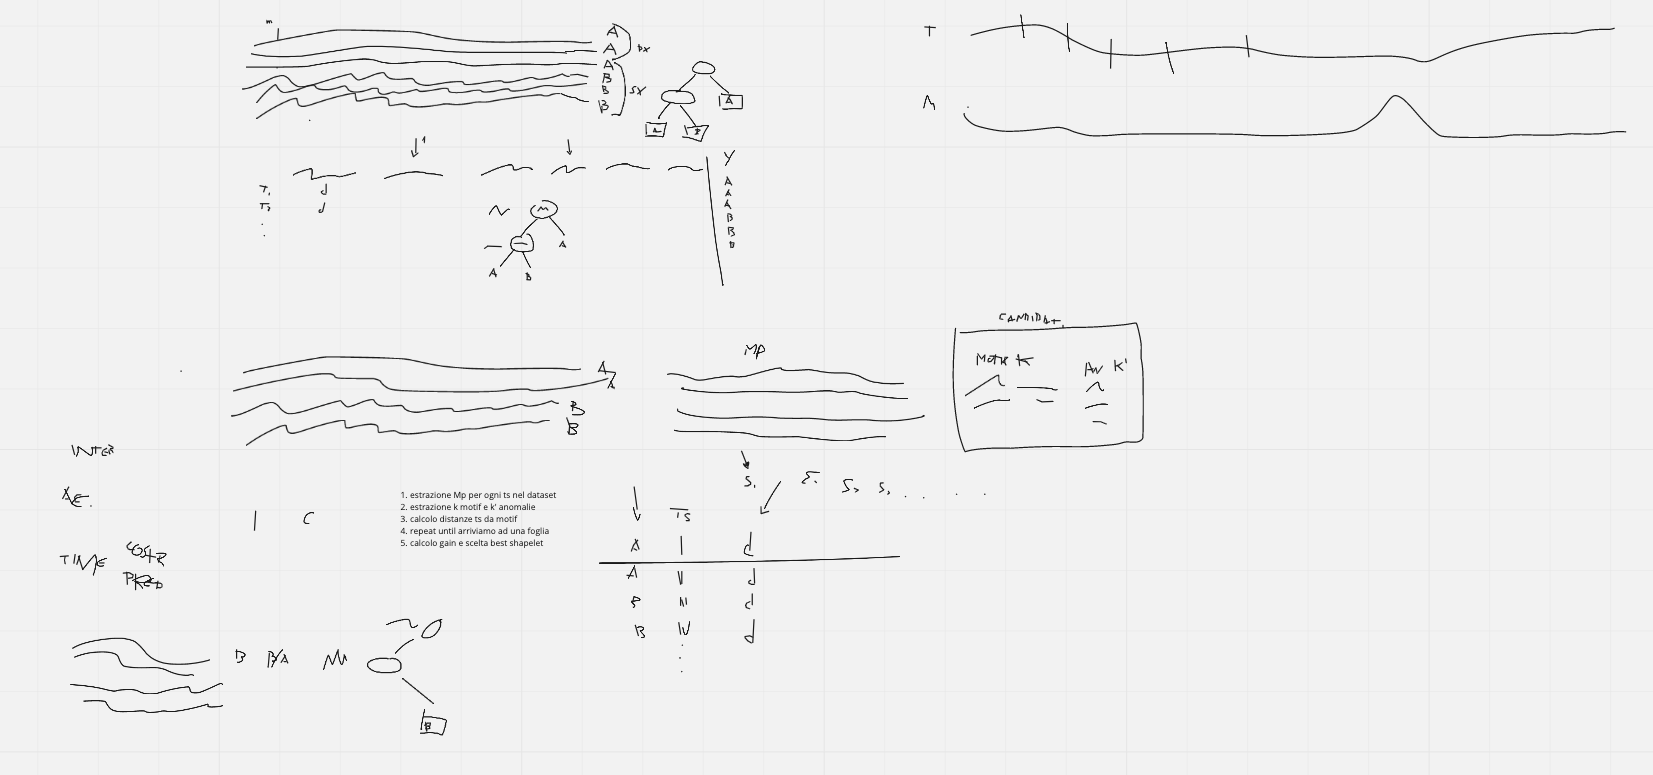 m
A
A
DX
A
B
B
SX
B
A
A
B
T
M
1
Y
T1
d
T2
d
A
A
A
B
B
A
A
B
CANDIDATI
A
A
B
B
MP
MOTIF K
AN K'
INTER
TIME COSTR
PRED
C
1. estrazione Mp per ogni ts nel dataset
2. estrazione k motif e k' anomalie
3. calcolo distanze ts da motif
4. repeat until arriviamo ad una foglia
5. calcolo gain e scelta best shapelet
S1
S2 S3 . . . .
TS
A I d
A II d
B III d
B IV d
B B/A
B